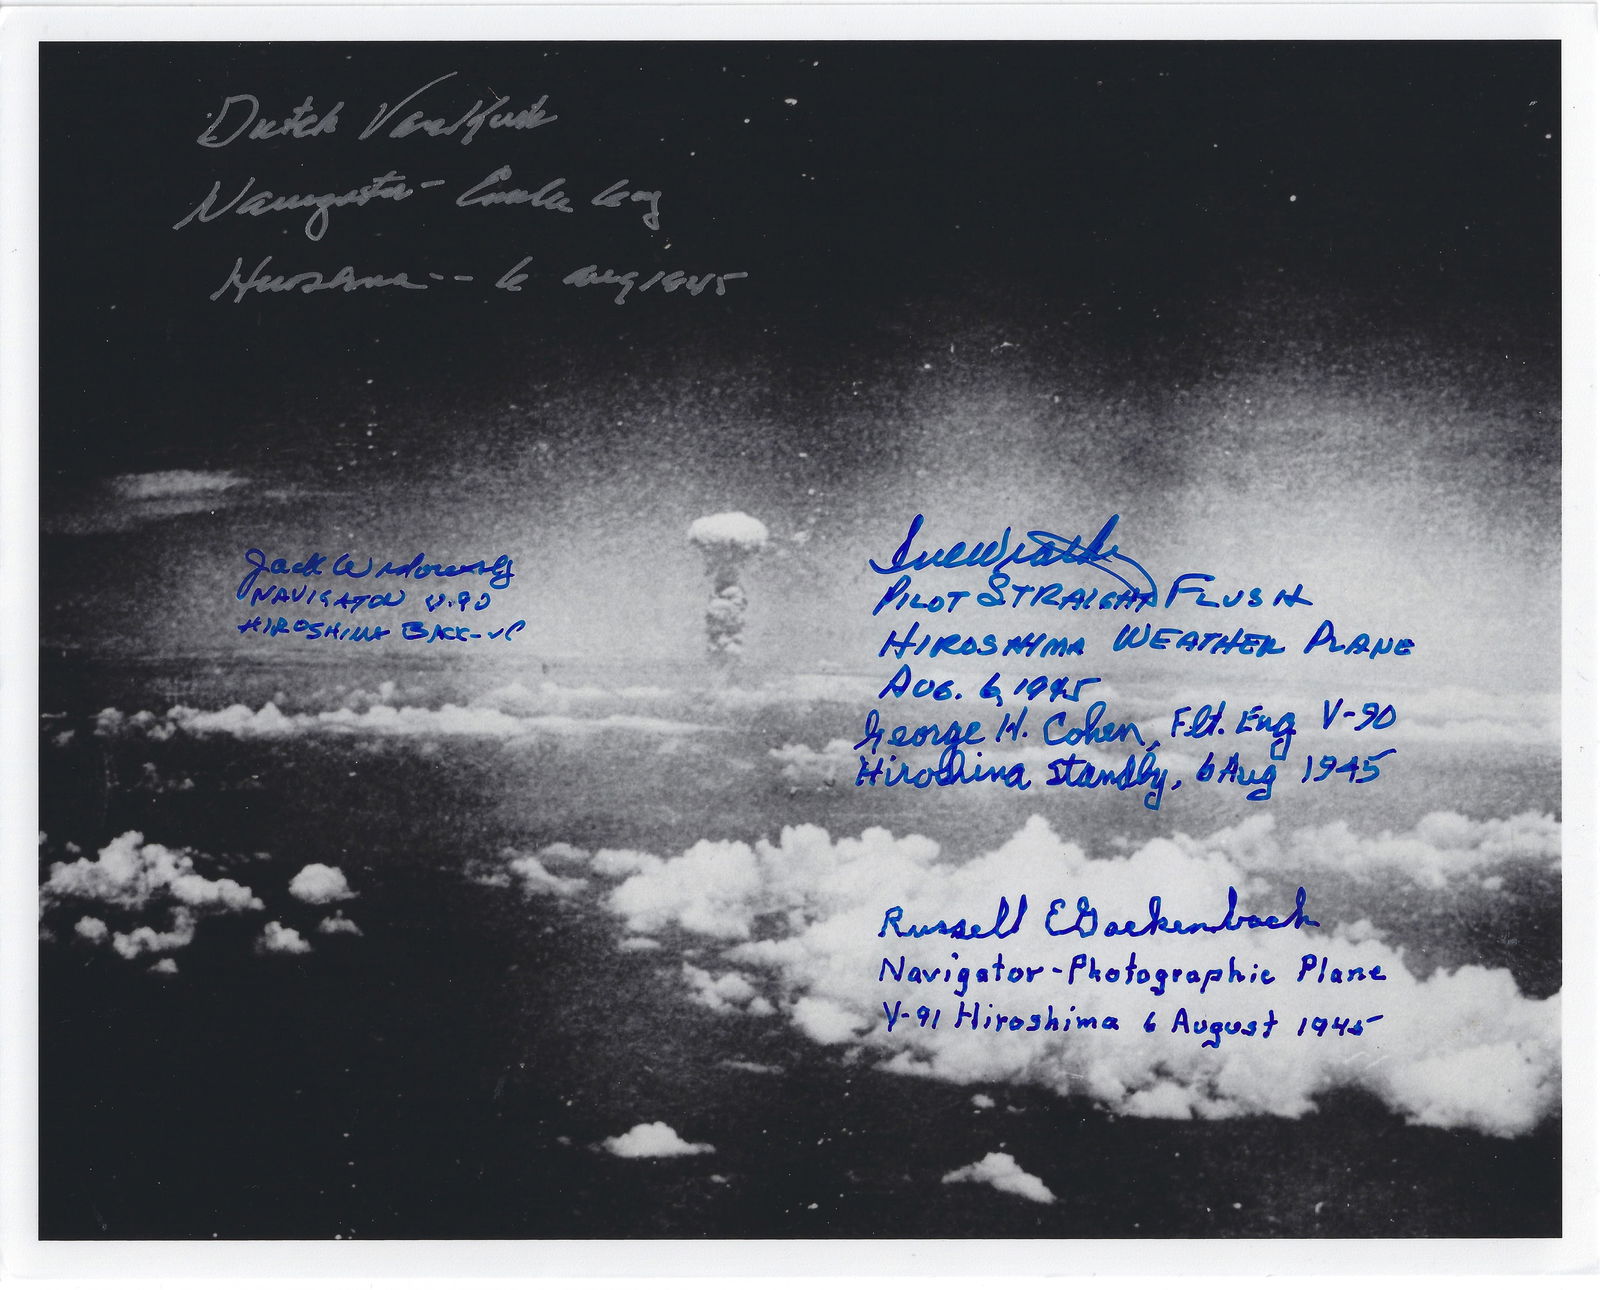 Dutch VanKirk
Navigator - Enola Gay
Hiroshima -- 6 Aug 1945
Jack Widowsky
NAVIGATOR V.90
HIROSHIMA BACK-UP
PILOT STRAIGHT FLUSH
HIROSHIMA WEATHER PLANE
AUG. 6, 1945
George H. Cohen, Flt. Eng V-90
Hiroshima standby, 6 Aug 1945
Russell E Gackenbach
Navigator-Photographic Plane
V-91 Hiroshima 6 August 1945